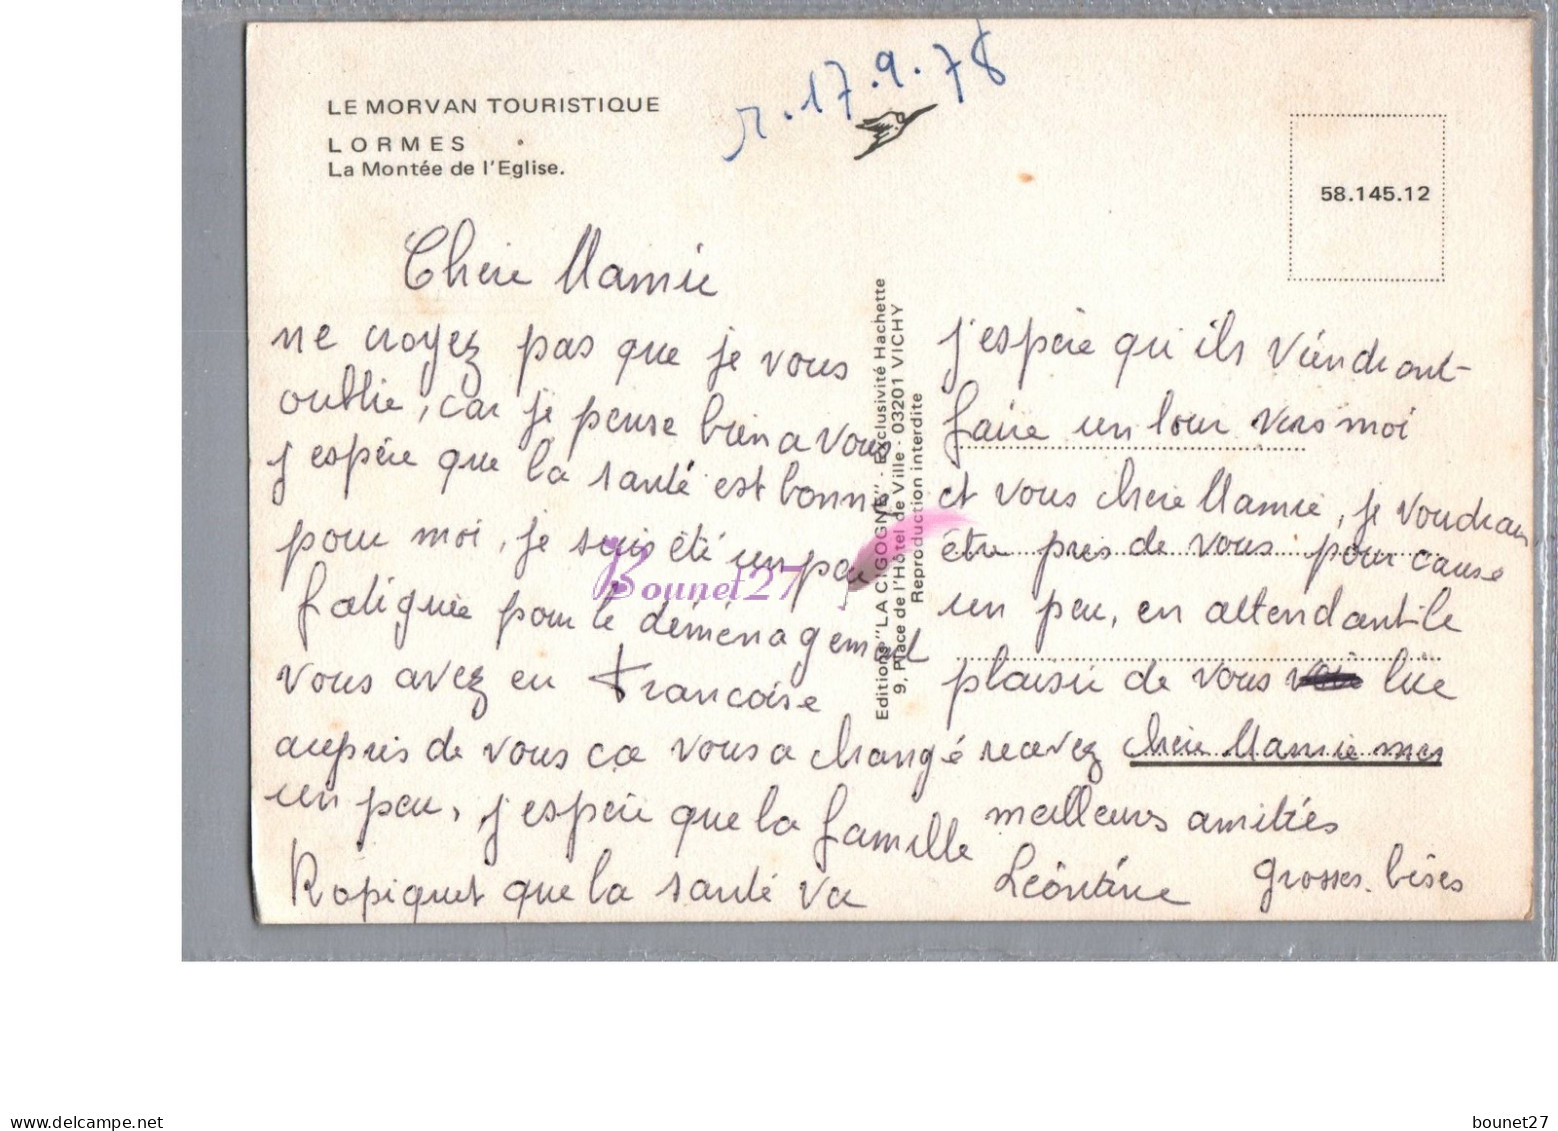 LE MORVAN TOURISTIQUE
LORMES
La Montée de l'Eglise.
r.17.9.78
58.145.12
Chère Mamie
ne croyez pas que je vous
oublie, car je pense bien a vous
j'espère que la santé est bonne
pour moi, je suis été un peu
fatiguée pour le déménagement
vous avez eu Francoise
auprès de vous ca vous a changé
un peu, j'espère que la famille
Rapiquet que la santé va
Editions "LA CIGOGNE" - Exclusivité Hachette
9, Place de l'Hôtel de Ville - 03201 VICHY
Reproduction interdite
j'espère qu'ils viendront
faire un tour vers moi
et vous chère Mamie, je voudrais
être près de vous pour cause
un peu, en attendant le
plaisir de vous lire
recevez chère Mamie mes
meilleurs amitiés
Léontine grosses bises
Bounet27
delcampe.net
bounet27